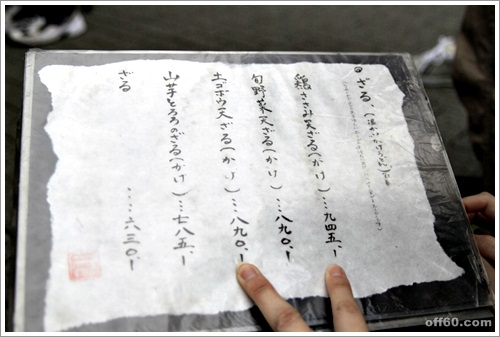 ざる、
鶏ささみ天ざる(かけ)…九四五、ー
旬野菜天ざる(かけ)…八九〇、ー
土ゴボウ天ざる(かけ)…八九〇、ー
山芋とろろのざる(かけ)…七八五、ー
ざる …‥六三〇、ー
off60.com